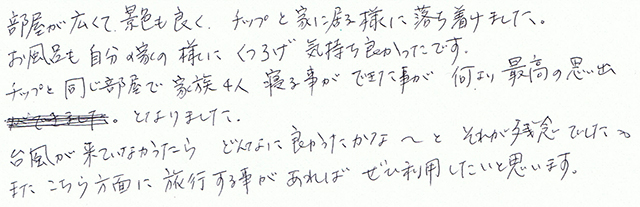 部屋が広くて、景色も良く、チップと家に居る様に落ち着けました。
お風呂も自分の家の様にくつろげ気持ち良かったです。
チップと同じ部屋で家族4人寝る事ができた事が何より最高の思い出
となりました。
台風が来ていなかったらどんなに良かったかな～とそれが残念でした。
またこちら方面に旅行する事があればぜひ利用したいと思います。